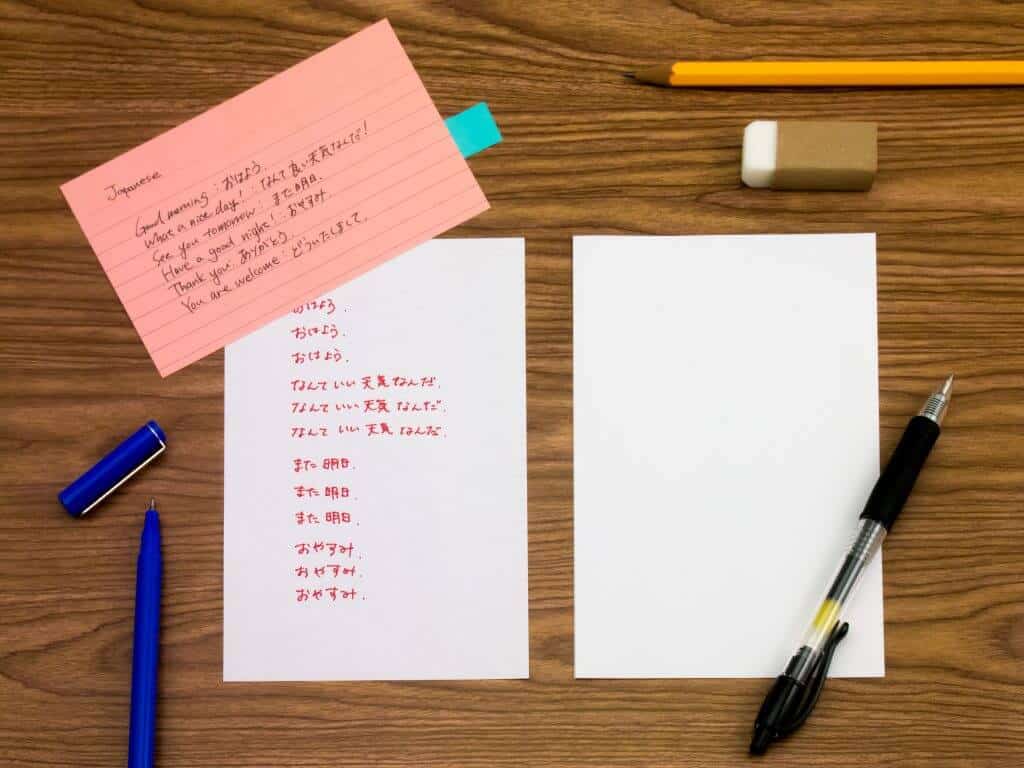 Japanese
Good morning : おはよう.
What a nice day! : なんて良い天気なんだ!
See you tomorrow : また明日.
Have a good night! : おやすみ
Thank you : ありがとう.
You are welcome : どういたしまして.
おはよう.
おはよう.
おはよう.
なんていい天気なんだ.
なんていい天気なんだ.
なんていい天気なんだ.
また明日.
また明日.
また明日.
おやすみ.
おやすみ.
おやすみ.